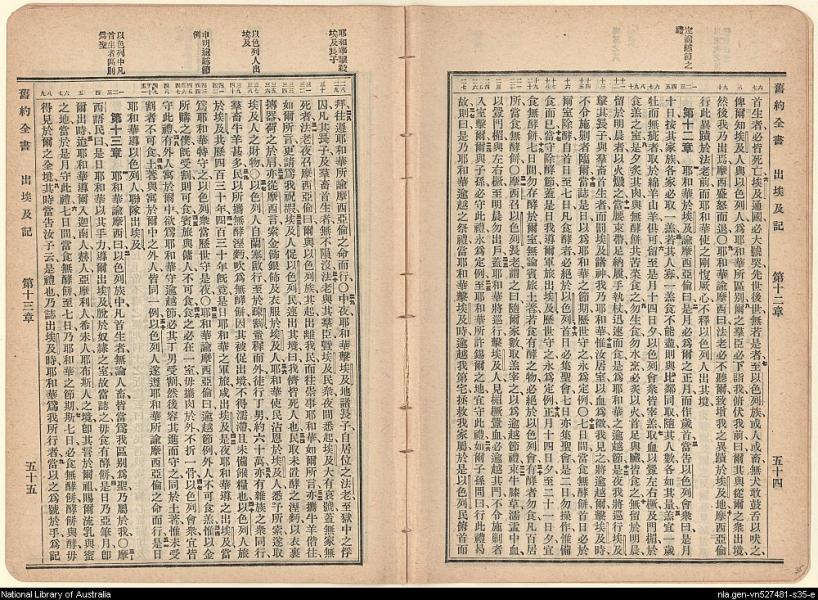 定逾越節之禮
舊約全書 出埃及記 第十二章 五十四
首生者必皆死亡埃及通國必大號哭先世後世無若是者至以色列族或人或畜無犬敢鼓舌以吠之
俾爾知埃及人與以色列人爲耶和華所區別爾之羣臣必下詣我俯伏我前曰爾與其從爾之衆出境
然後我乃出摩西盛怒而退○耶和華諭摩西曰法老必不聽爾致增我之異蹟於埃及地摩西亞倫
行此異蹟於法老前而耶和華使之剛愎厥心不釋以色列人出其境
第十二章 耶和華於埃及諭摩西亞倫曰是月必爲爾之正月而作歲首當告以色列會衆曰是月
十日按其家族各家必取一羔若其人寡一羔食不能盡則與比鄰同取隨其人數各如其量羔宜一歲
牡而無疵者取於綿羊山羊俱可留至是月十四日夕以色列會衆皆宰羔取血以釁左右橛及門楣於
食羔之室是夕炙其肉與無酵餅共苦菜食之勿生食勿水烹必炙以火首足與臟皆食之無留於明晨
留於明晨者以火燬之當腰束帶足納履手執杖迅速而食是爲耶和華之逾越節是夜我將巡行埃及
擊其長子與羣畜首生者而罰埃及諸神我乃耶和華惟汝居室以血爲徵我見之將逾越爾擊埃及時
不令施剿者臨爾當誌是日以爲耶和華之節期歷世守之永爲定例○七日間當食無酵餅首日必於
爾室除酵自首日至七日凡食酵者必絕於以色列首日必集聖會七日亦集聖會是二日勿操作惟備
食而已當守除酵節蓋是日我導爾軍旅出埃及歷世守之永爲定例正月十四日夕至二十一日夕宜
食無酵餅七日間勿存酵於爾室無論賓旅土著若食有酵之物必絕於以色列會有酵者勿食凡居室
所當食無酵餅○摩西召以色列長老謂之曰隨爾家數取羔宰之以爲逾越節禮束牛膝草濡盂中血
以釁門楣與左右橛至明晨勿出戶蓋耶和華將巡行擊埃及人見楣橛釁血必逾越其門不令施剿者
入室擊爾爾與子孫必守此禮永爲定例至耶和華所許錫爾之地宜守此禮如爾子孫問曰行此禮曷
故則曰是乃耶和華逾越之祭禮當耶和華擊埃及時逾越我第宅拯救我家屬於是以色列民俯首而
耶和華擊殺埃及長子
以色列人出埃及
申明逾越節例
以色列中凡首生者區別爲聖
拜往遵耶和華所諭摩西亞倫之命而行○中夜耶和華擊埃及地諸長子自居位之法老至獄中之俘
囚凡其長子及羣畜首生者無不隕沒法老與其羣臣擧埃及民衆夜間悉起埃及人有哀號蓋無家無
死者法老夜召摩西亞倫曰爾與以色列族其起出離我民而往崇事耶和華如爾所言亦攜牛羊偕往
如爾所言更請爲我祝嘏埃及人促以色列民速出其境曰我儕皆死人也民取未酵之溼麪以衣裹
摶器荷之於肩亦從摩西言索金飾銀飾及衣服於埃及人耶和華使民沾恩於埃及人悉予所索遂取
埃及人之財物○以色列人自蘭塞啟行至於疎割童稚而外徒行丁男約六十萬亦有雜族之衆同行
羣畜牛羊甚多民以所攜無酵溼麪炊爲無酵餅因其被促出境不得濡滯且未備餱糧也以色列人旅
於埃及其歷四百三十年四百三十年旣竟是日耶和華之軍旅成出埃及是夜耶和華導之出埃及當
爲耶和華特守之以色列衆當歷世守是夜○耶和華諭摩西亞倫曰逾越節例外人不可食羔惟以金
所購之僕旣受割則可食賓旅與傭人不可食食之必在一室毋攜肉於外不折一骨以色列會衆宜皆
守此禮有外人寓於爾中欲爲耶和華守逾越節必其丁男受割然後容其進而守之同於土著惟未受
割者不可食土著與寓於爾中之外人皆同一例以色列人遂遵耶和華所諭摩西亞倫之命而行是日
耶和華導以色列人聯隊出埃及
第十三章 耶和華諭摩西曰以色列族中凡首生者無論人畜皆當爲我區別爲聖乃屬於我○摩
西語民曰是日耶和華以其手力導爾出埃及脫於奴隸之室故當誌之毋食有酵餅是日乃亞筆月卽
爾出時迨耶和華導爾入迦南人赫人亞摩利人希未人耶布斯人之境卽其誓於爾祖賜爾流乳與蜜
之地當於是月守此禮七日間當食無酵餅至七日乃耶和華之節期斯七日必食無酵餅酵餅與酵毋
得見於爾之全境其時當告汝子云是禮也乃誌出埃及時耶和華爲我所行者當以之爲號於手爲記
舊約全書 出埃及記 第十三章 五十五
National Library of Australia
nla.gen-vn527481-s35-e